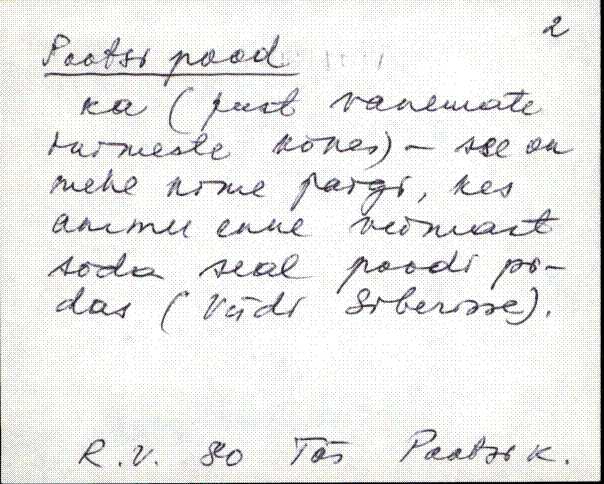 2
Paatsi pood
ka (just vanemate
inimeste kõnes) – see on
mehe nime järgi, kes
ammu enne viimast
sõda seal poodi pi-
das (viidi Siberisse).
R.V. 80 Tõs Paatsi k.